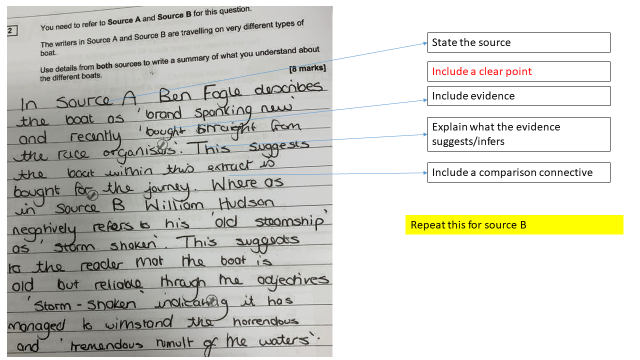 2
You need to refer to Source A and Source B for this question.
The writers in Source A and Source B are travelling on very different types of
boat.
Use details from both sources to write a summary of what you understand about
the different boats.
[8 marks]
In Source A Ben Fogle describes
the boat as 'brand spanking new'
and recently 'bought straight from
the race organisers'. This suggests
the boat within this extract is
bought for the journey. Where as
in Source B William Hudson
negatively refers to his 'old steamship'
as 'storm shaken'. This suggests
to the reader that the boat is
old but reliable through the adjectives
'Storm-shaken' indicating it has
managed to wimstand the horrendous
and 'tremendous tumult of the waters'.
State the source
Include a clear point
Include evidence
Explain what the evidence
suggests/infers
Include a comparison connective
Repeat this for source B